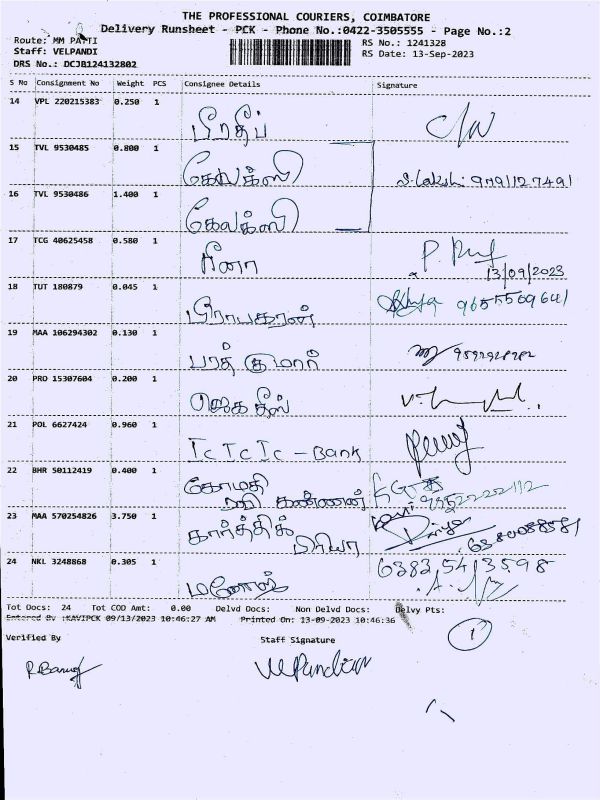 THE PROFESSIONAL COURIERS, COIMBATORE
Delivery Runsheet - PCK - Phone No.:0422-3505555 - Page No.:2
Route: MM PATTI
RS No.: 1241328
Staff: VELPANDI
RS Date: 13-Sep-2023
DRS No.: DCJB124132802
S No Consignment No Weight PCS Consignee Details Signature
14 VPL 220215383 0.250 1
பிரதீப்
15 TVL 9530485 0.800 1
S. Lakshi 9791127491
16 TVL 9530486 1.400 1
17 TCG 40625458 0.580 1
மீனா
13/09/2023
18 TUT 180879 0.045 1
பிரபாகரன் 9655569641
19 MAA 106294302 0.130 1
பரத் குமார்
20 PRO 15307604 0.200 1
ஜெகதீஸ்
21 POL 6627424 0.960 1
IcIcIc - Bank
22 BHR 50112419 0.400 1
கோமதி
ஹரி கண்ணன்
23 MAA 570254826 3.750 1
கார்த்திக்
பிரியா
24 NKL 3248868 0.305 1
6383543598
மனோஜ்
Tot Docs: 24 Tot COD Amt: 0.00 Delvd Docs: Non Delvd Docs: Delvy Pts:
Entered By :KAVIPCK 09/13/2023 10:46:27 AM Printed On: 13-09-2023 10:46:36
1
Verified By Staff Signature
VelPandian